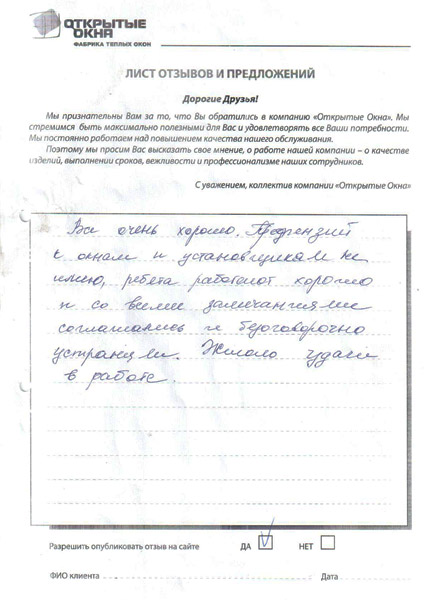 ОТКРЫТЫЕ
ОКНА
ФАБРИКА ТЕПЛЫХ ОКОН
ЛИСТ ОТЗЫВОВ И ПРЕДЛОЖЕНИЙ
Дорогие Друзья!
Мы признательны Вам за то, что Вы обратились в компанию «Открытые Окна». Мы
стремимся быть максимально полезными для Вас и удовлетворять все Ваши потребности.
Мы постоянно работаем над повышением качества нашего обслуживания.
Поэтому мы просим Вас высказать свое мнение, о работе нашей компании – о качестве
изделий, выполнении сроков, вежливости и профессионализме наших сотрудников.
С уважением, коллектив компании «Открытые Окна»
Все очень хорошо. Претензий
к окнам и установщикам не
имею, ребята работают хорошо
и со всеми замечаниями
соглашались и безоговорочно
устраняли. Желаю удачи
в работе.
Разрешить опубликовать отзыв на сайте ДА НЕТ
ФИО клиента Дата